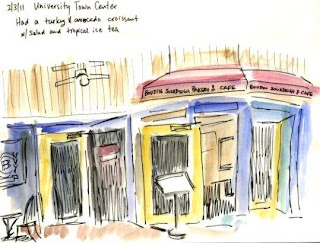 2/3/11 University Town Center
Had a turkey & avocado croissant
w/ salad and tropical ice tea
BOUDIN SOURDOUGH BAKERY & CAFE
BOUDIN SOURDOUGH & CAFE